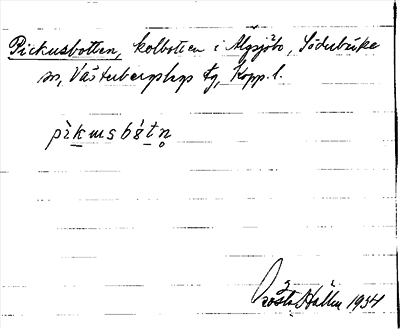 Pickusbotten, kolbotten i Älgsjöbo, Söderbärke
sn, Västerbergslags fg, Kopp. l.
pìkɯsbótn̥
Gösta Hallin 1934